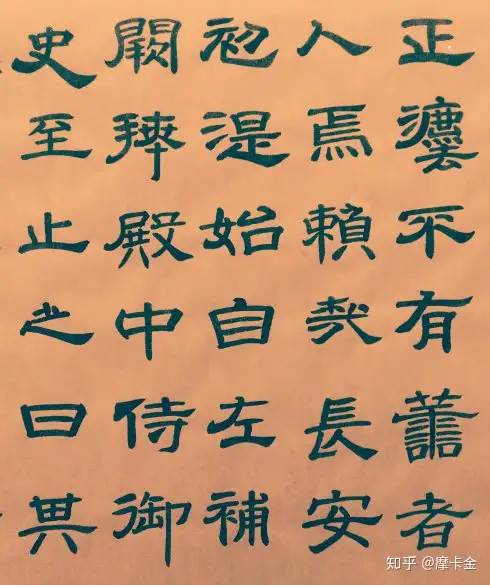 正灋不有譱者
人焉賴哉長安
初湜始自左補
闕拜殿中侍御
史至止之日其
知乎 @摩卡金